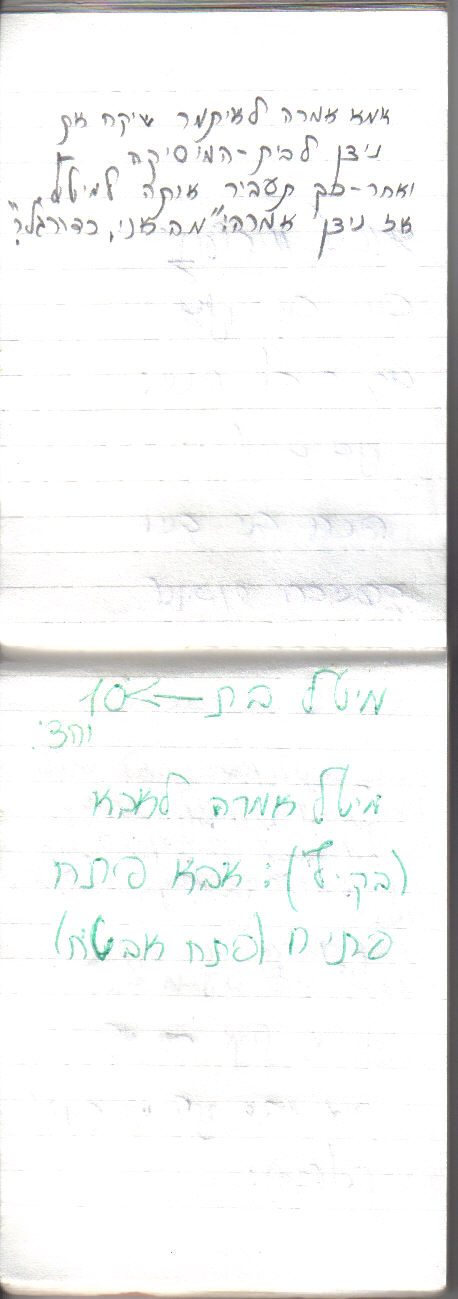 אמא אמרה לאיתמר שיקח את
ניצן לבית-המוסיקה
ואחר-כך תעביר אותה למיטל,
אז ניצן אמרה: "מה אני, כדורגל?"
מיטל בת ← 10
וחצי.
מיטל אמרה לאבא
(בק.ט): אבא פיתח
פתיח (פתח אבטיח)